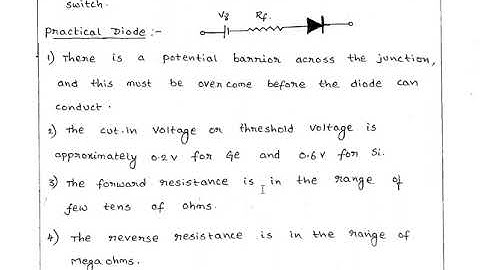 switch.
Practical Diode :-
Vγ Rf.
1) There is a potential barrier across the junction,
and this must be over come before the diode can
conduct.
2) The cut-in voltage or threshold voltage is
approximately 0.2V for Ge and 0.6V for Si.
3) The forward resistance is in the range of
few tens of ohms.
4) The reverse resistance is in the range of
Mega ohms.